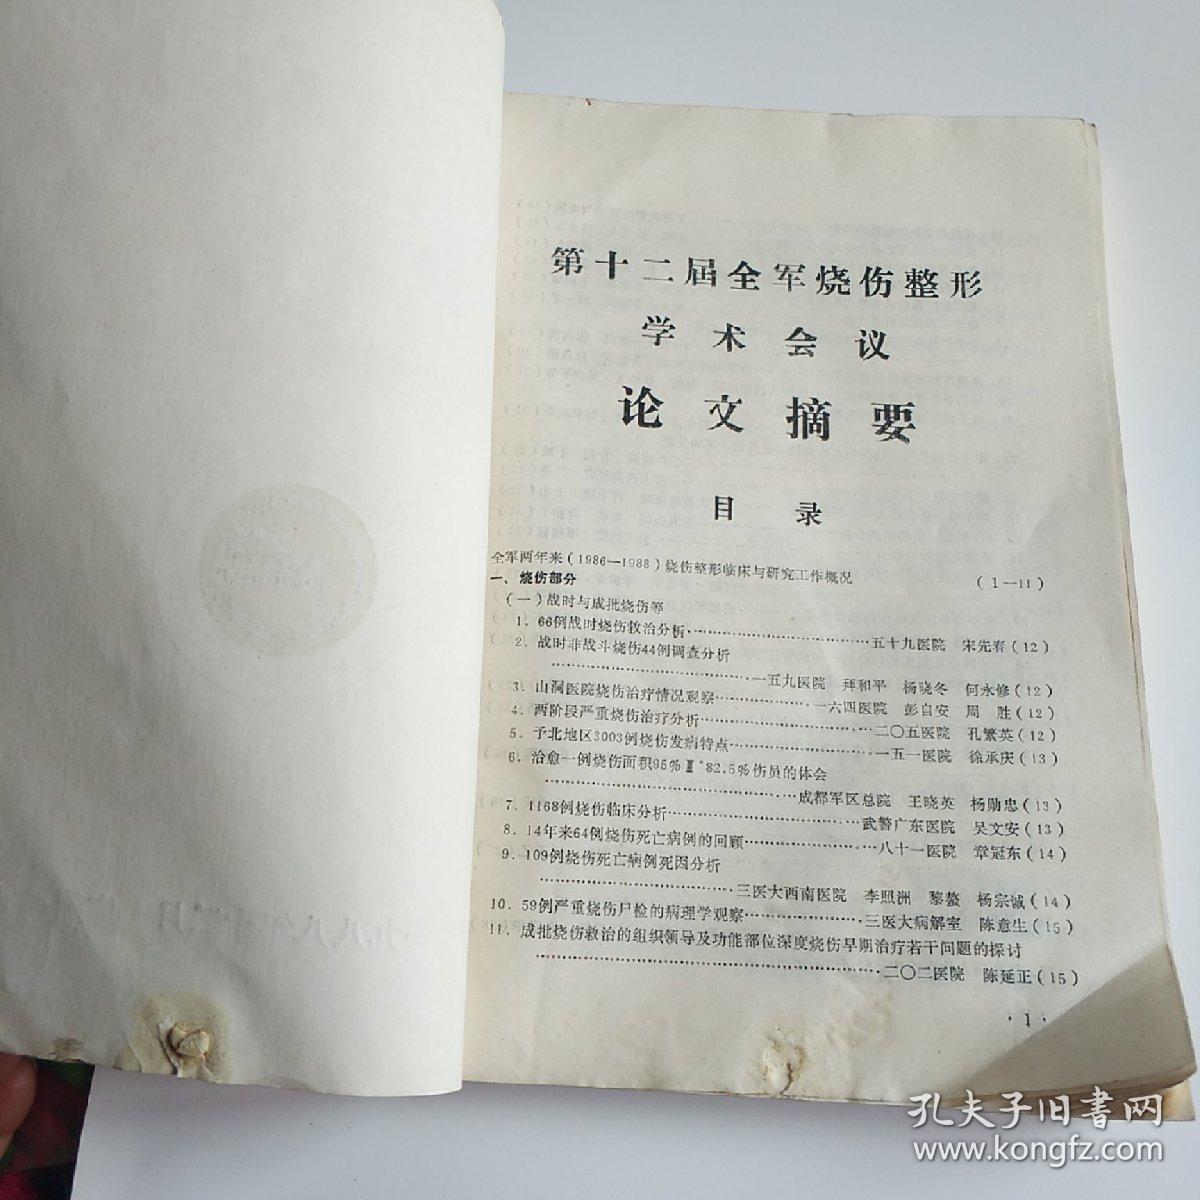 第十二届全军烧伤整形
学术会议
论文摘要
目录
全军两年来(1986—1988)烧伤整形临床与研究工作概况 (1—11)
一、烧伤部分
(一)战时与成批烧伤等
1.66例战时烧伤救治分析……………………五十九医院 宋先春(12)
2.战时非战斗烧伤44例调查分析
……………………一五九医院 拜和平 杨晓冬 何永修(12)
3.山洞医院烧伤治疗情况观察…………一六四医院 彭自安 周 胜(12)
4.两阶段严重烧伤治疗分析……………………二〇五医院 孔繁英(12)
5.予北地区3003例烧伤发病特点………………一五一医院 徐承庆(13)
6.治愈一例烧伤面积95%Ⅲ°82.5%伤员的体会
……………………成都军区总院 王晓英 杨勋忠(13)
7.1168例烧伤临床分析……………………武警广东医院 吴文安(13)
8.14年来64例烧伤死亡病例的回顾……………八十一医院 章冠东(14)
9.109例烧伤死亡病例死因分析
……………………三医大西南医院 李照洲 黎鳌 杨宗诚(14)
10.59例严重烧伤尸检的病理学观察……………三医大病解室 陈意生(15)
11.成批烧伤救治的组织领导及功能部位深度烧伤早期治疗若干问题的探讨
……………………二〇二医院 陈延正(15)
·1·
孔夫子旧书网
www.kongfz.com